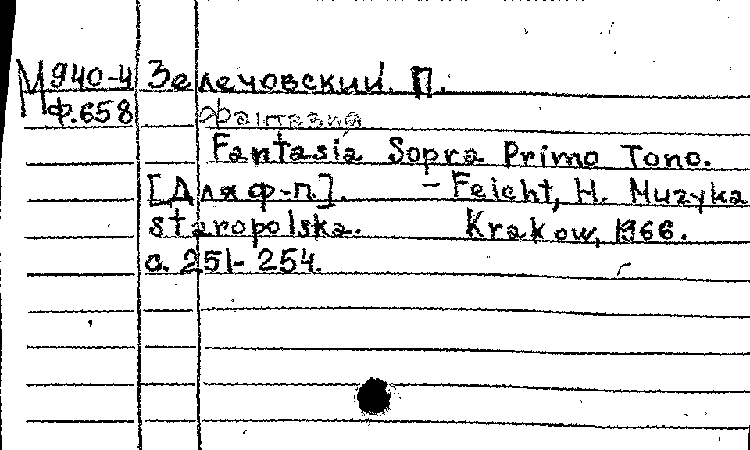 М 940-4 Зелечовский. П.
Ф.658 Фантазия
Fantasia Sopra Primo Tono.
[Для ф-п.]. – Feicht, H. Muzyka
staropolska. Krakow, 1966.
с. 251-254.